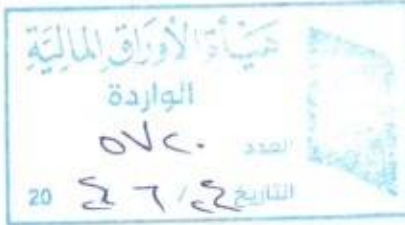 هَيْأَةُ الْأَوْرَاقِ الْمَالِيَّةِ
الواردة
العدد ٥٧٢٠
التاريخ / ٦ 20